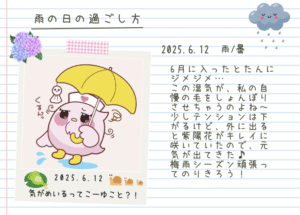 雨の日の過ごし方
2025.6.12 雨/曇
6月に入ったとたんに
ジメジメ…
この湿気が、私の自
慢の毛をしょんぼり
させちゃうのよね〜
少しテンションは下
がるけど、外に出る
と紫陽花がキレイに
咲いていたので、元
気が出てきた♪
梅雨シーズン頑張っ
てのりきろう！
くるん。
2025.6.12
気がめいるってこーゆこと？！